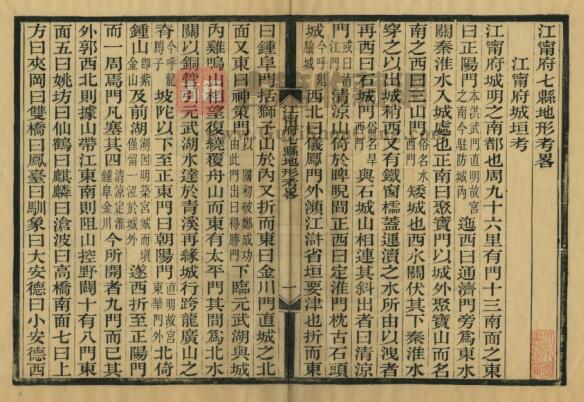 江甯府七縣地形考畧
江甯府城垣考
江甯府城明之南都也周九十六里有門十三南面之東
曰正陽門本洪武門直明故宮之南今駐防城內迤西曰通濟門旁爲東水
關秦淮水入城處也正南曰聚寶門以城外聚寶山而名
南之西曰三山門俗名水西門矮城也西水關伏其下秦淮水
穿之以出城稍西又有鐵窗櫺蓋運瀆之水所由以洩者
再西曰石城門俗名旱西門與石城山相連其斜出者曰清涼
門或曰清江門清涼山倚於睥睨間正西曰定淮門枕古石頭
城今呼鬼臉城西北曰儀鳳門外瀕江滸省垣要津也折而東
江甯府七縣地形考畧
一
曰鍾阜門括獅子山於內又折而東曰金川門直城之北
面又東曰神策門以國初破鄭成功由此門出曰得勝門下臨元武湖與城
內雞鳴山相望復繞覆舟山而東有太平門其間爲北水
關以銅管引元武湖水達於青溪再緣城行跨龍廣山之
脊今呼龍脖子坡陀以下至正東門曰朝陽門直明故宮東華門外北倚
鍾山即紫金山及前湖湖因明築宮城而塡僅留一泓於城外遂西折至正陽門
而一周焉門凡塞其四清涼定淮鍾阜金川今所開者九門而已其
外郭西北則據山帶江東南則阻山控野闢十有八門東
面五曰姚坊曰仙鶴曰麒麟曰滄波曰高橋南面七曰上
方曰夾岡曰雙橋曰鳳臺曰馴象曰大安德曰小安德西